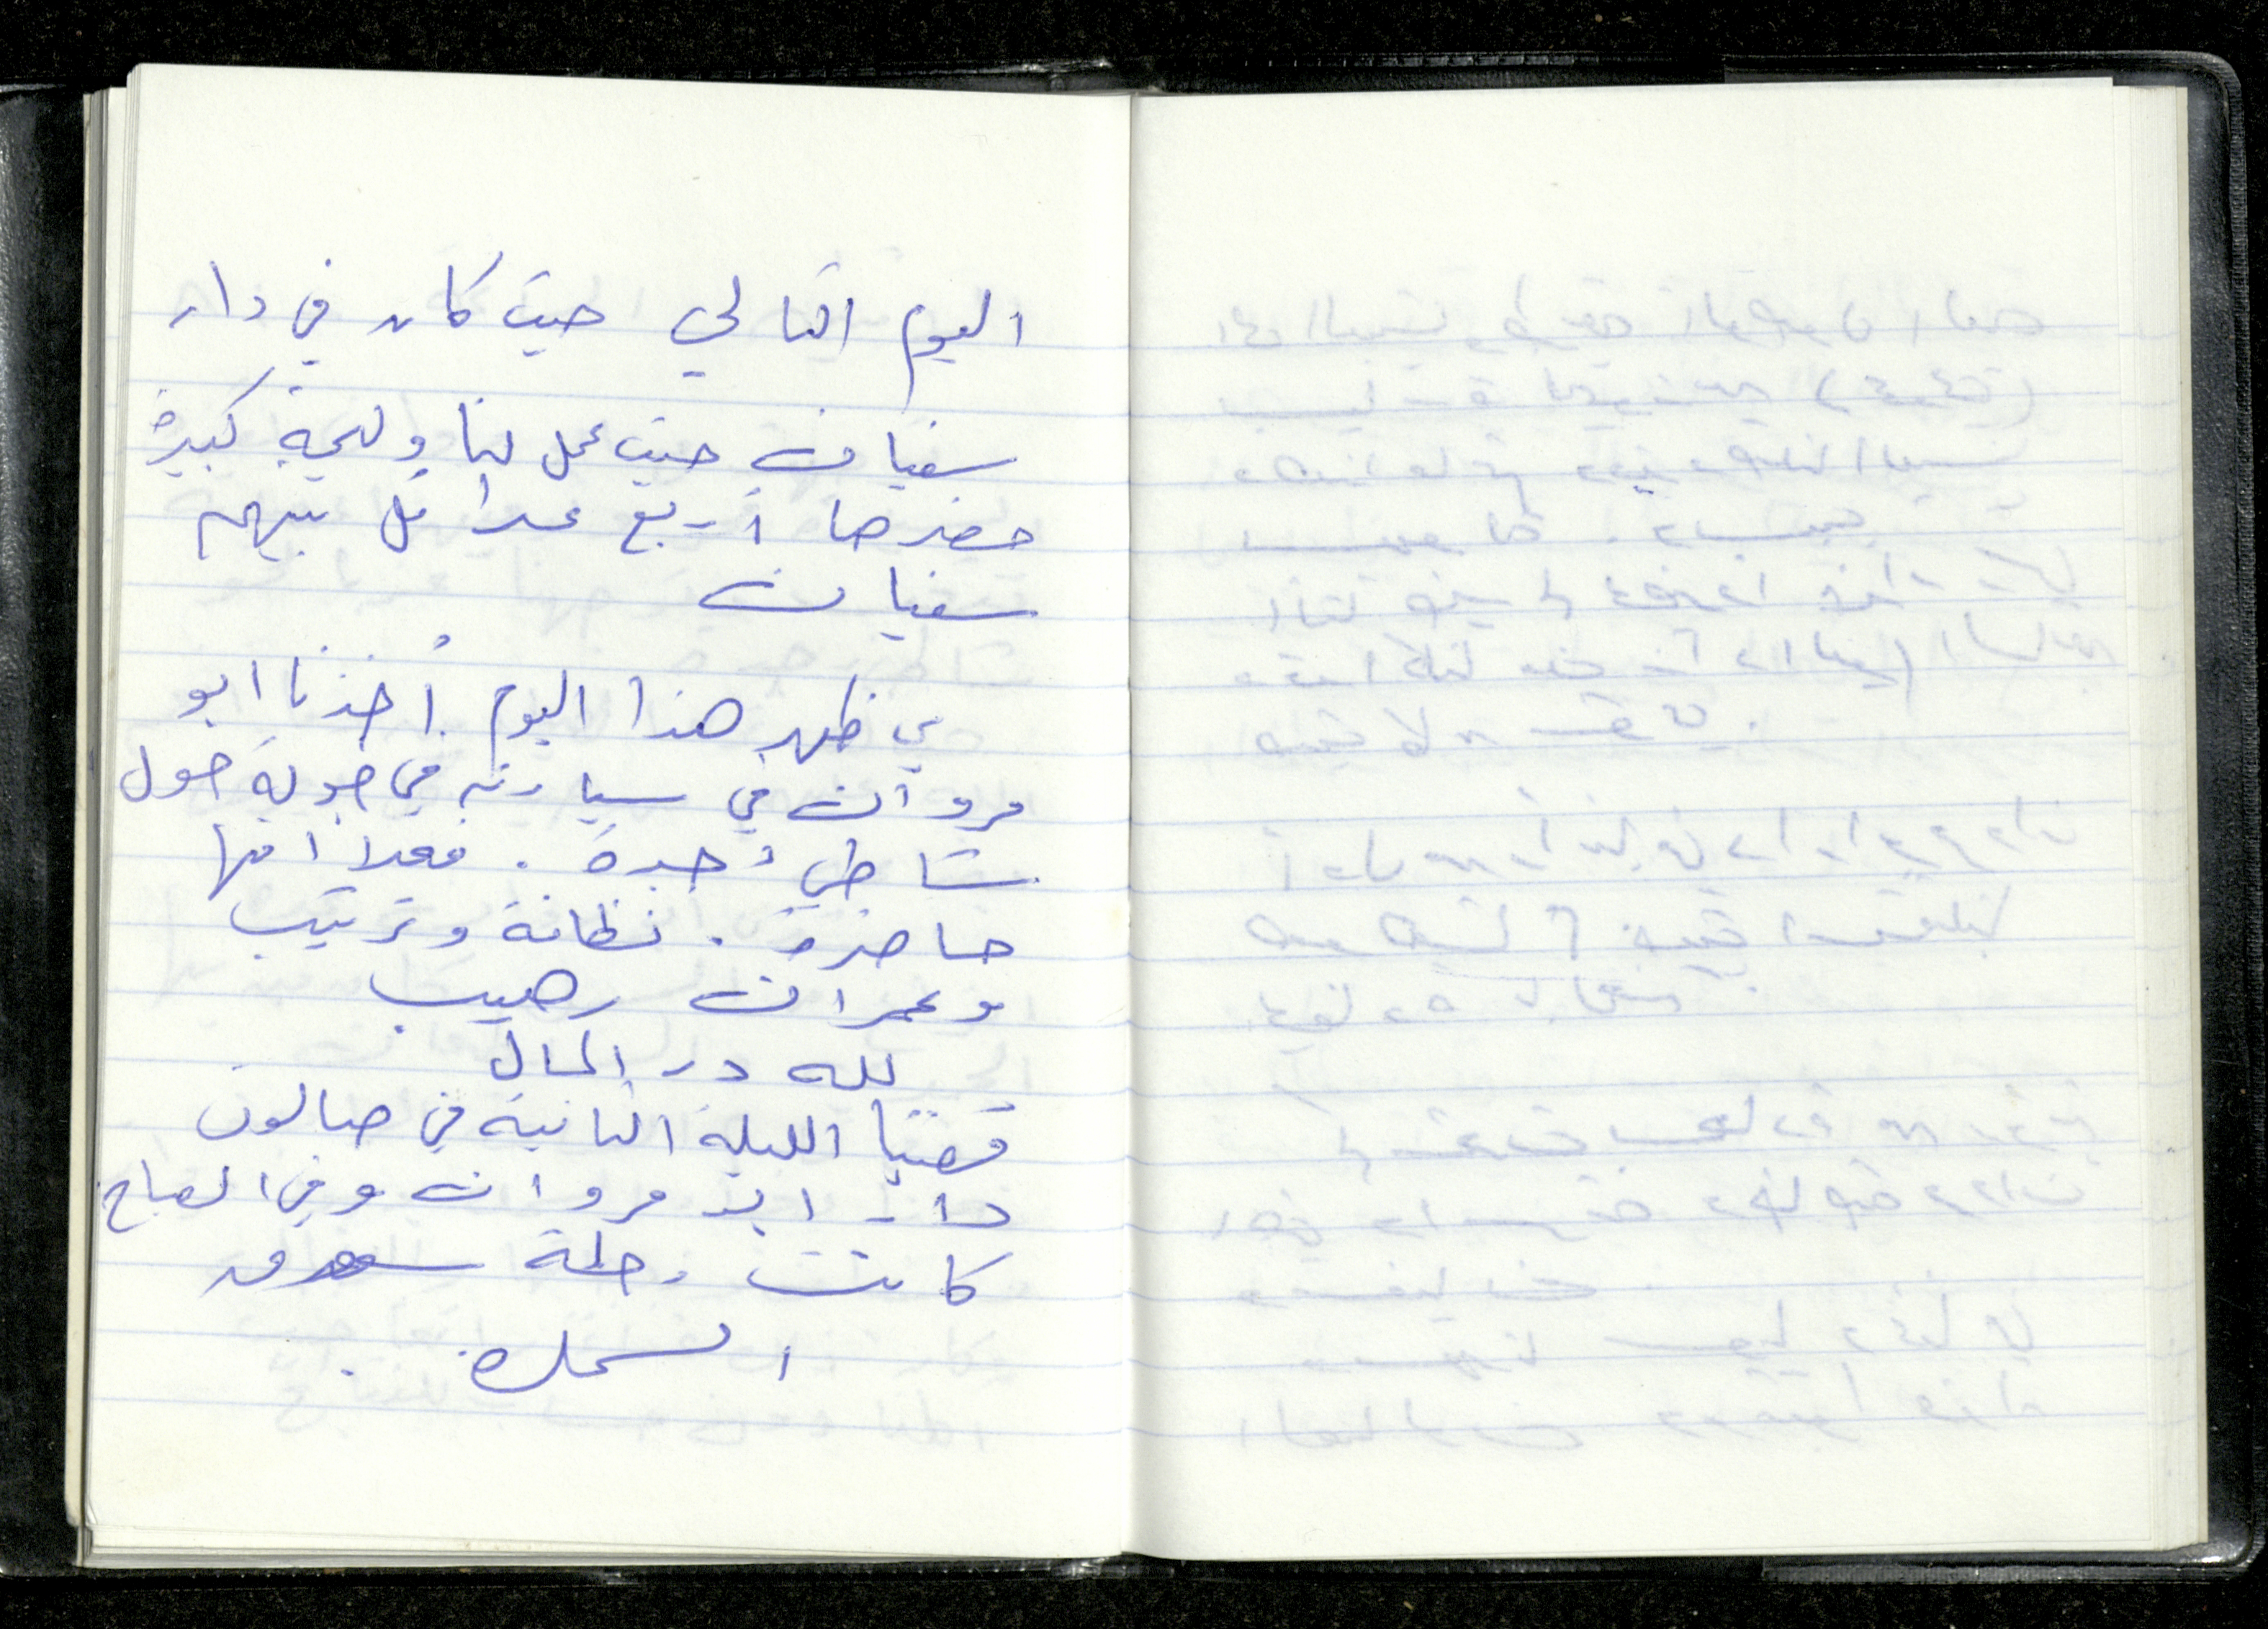 اليوم التالي حيث كان في دار
سفيان حيث عمل لنا وليمة كبيرة
حضرها أربع عوائل بينهم
سفيان
في ظهر هذا اليوم أخذنا ابو
مروان في سيارته في جولة حول
شاطئ جدة . فعلا انها
حاضرة . نظافة وترتيب
وعمران رهيب
لله در المال
قضينا الليلة الثانية في صالون
دار ابو مروان وفي الصباح
كانت رحلة سوق
السمك .